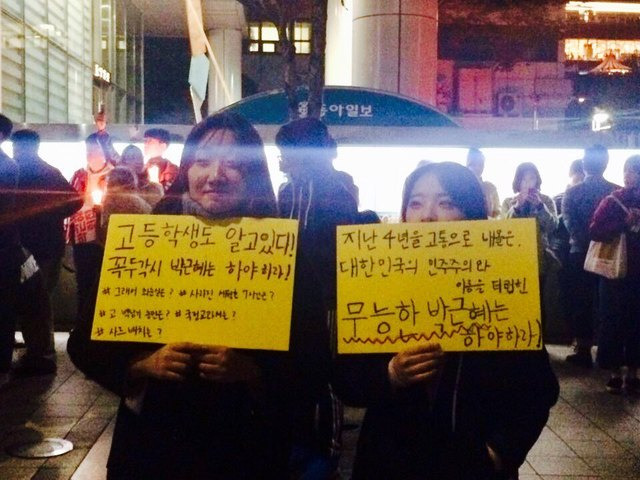 동아일보
고등학생도 알고있다!
꼭두각시 박근혜는 하야하라!
# 그래서 최순실은? # 사라진 세월호 7시간은?
# 고 백남기 농민은? # 국정교과서는?
# 사드 배치는?
지난 4년을 고통으로 내몰은,
대한민국의 민주주의와
이름을 더럽힌
무능한 박근혜는
하야하라!